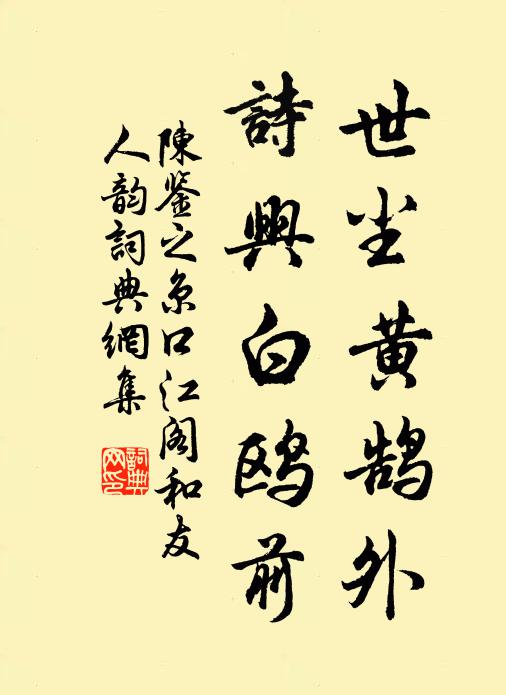 世尘黄鹄外
詩興白鸥前
陳鉴之京口江阁和友
人韵詞典網集
詞典
网印